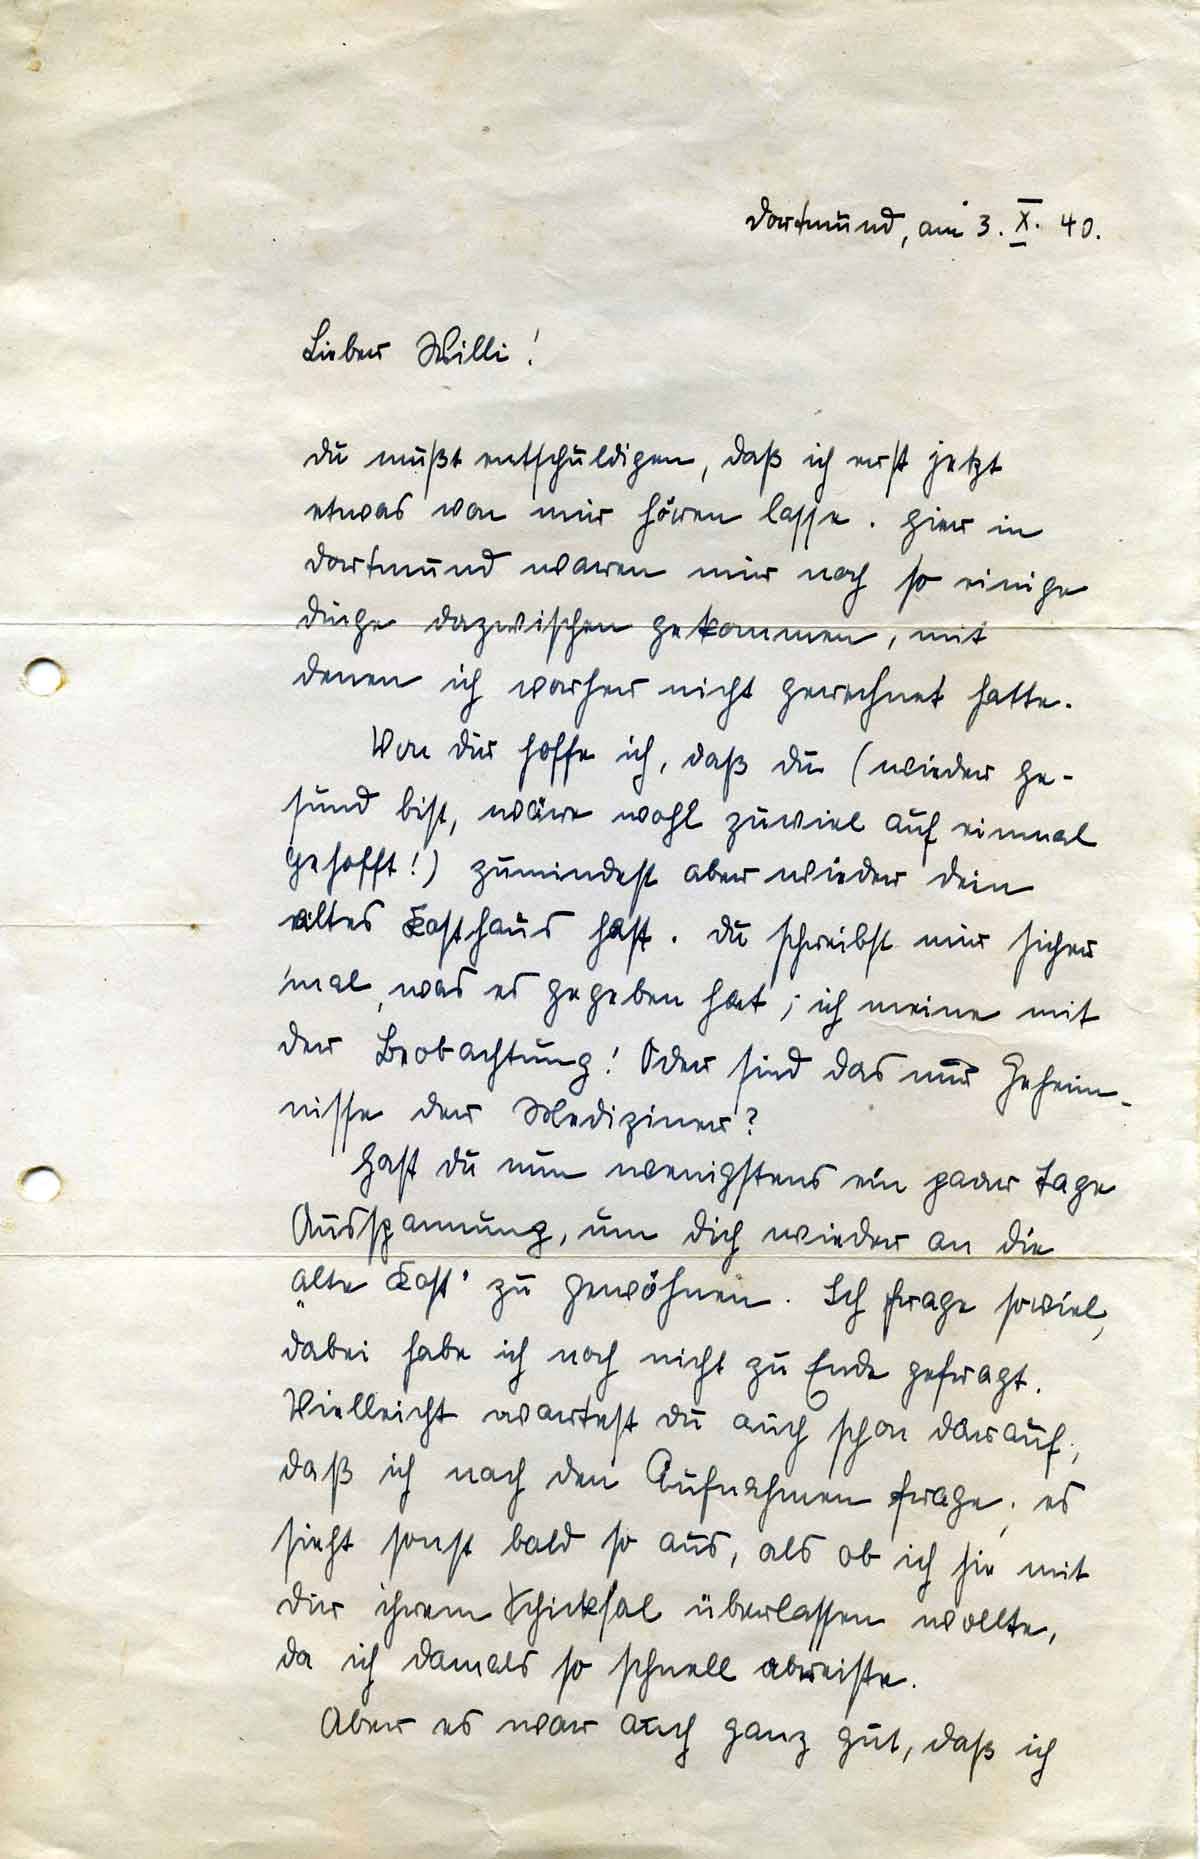 Dortmund, am 3. X. 40.
Lieber Willi!
Du mußt entschuldigen, daß ich erst jetzt
etwas von mir hören lasse. Hier in
Dortmund waren mir noch so einige
Dinge dazwischen gekommen, mit
denen ich vorher nicht gerechnet hatte.
Von Dir hoffe ich, daß Du (wieder ge-
sund bist, wäre wohl zuviel auf einmal
gehofft!) zumindest aber wieder Dein
altes Kosthaus hast. Du schreibst mir sicher
'mal, was es gegeben hat; ich meine mit
der Beobachtung! Oder sind das nur Geheim-
nisse der Mediziner?
Hast Du nun wenigstens ein paar Tage
Ausspannung, um Dich wieder an die
„alte Kost" zu gewöhnen. Ich frage soviel,
dabei habe ich noch nicht zu Ende gefragt.
Vielleicht wartest Du auch schon darauf,
daß ich nach den Aufnahmen frage; es
sieht sonst bald so aus, als ob ich sie mit
Dir ihrem Schicksal überlassen wollte,
da ich damals so schnell abreiste.
Aber es war auch ganz gut, daß ich